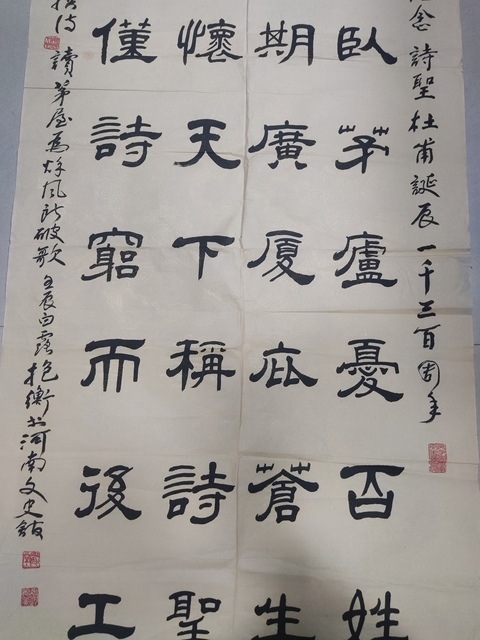 念詩聖杜甫誕辰一千三百周年
臥茅廬憂百姓
期廣厦庇蒼生
懷天下稱詩聖
僅詩窮而後工
诗讀茅屋爲秌風所破歌壬辰白露抱衡书河南文史館